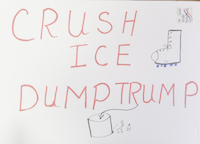 CRUSH
ICE
DUMPTRUMP